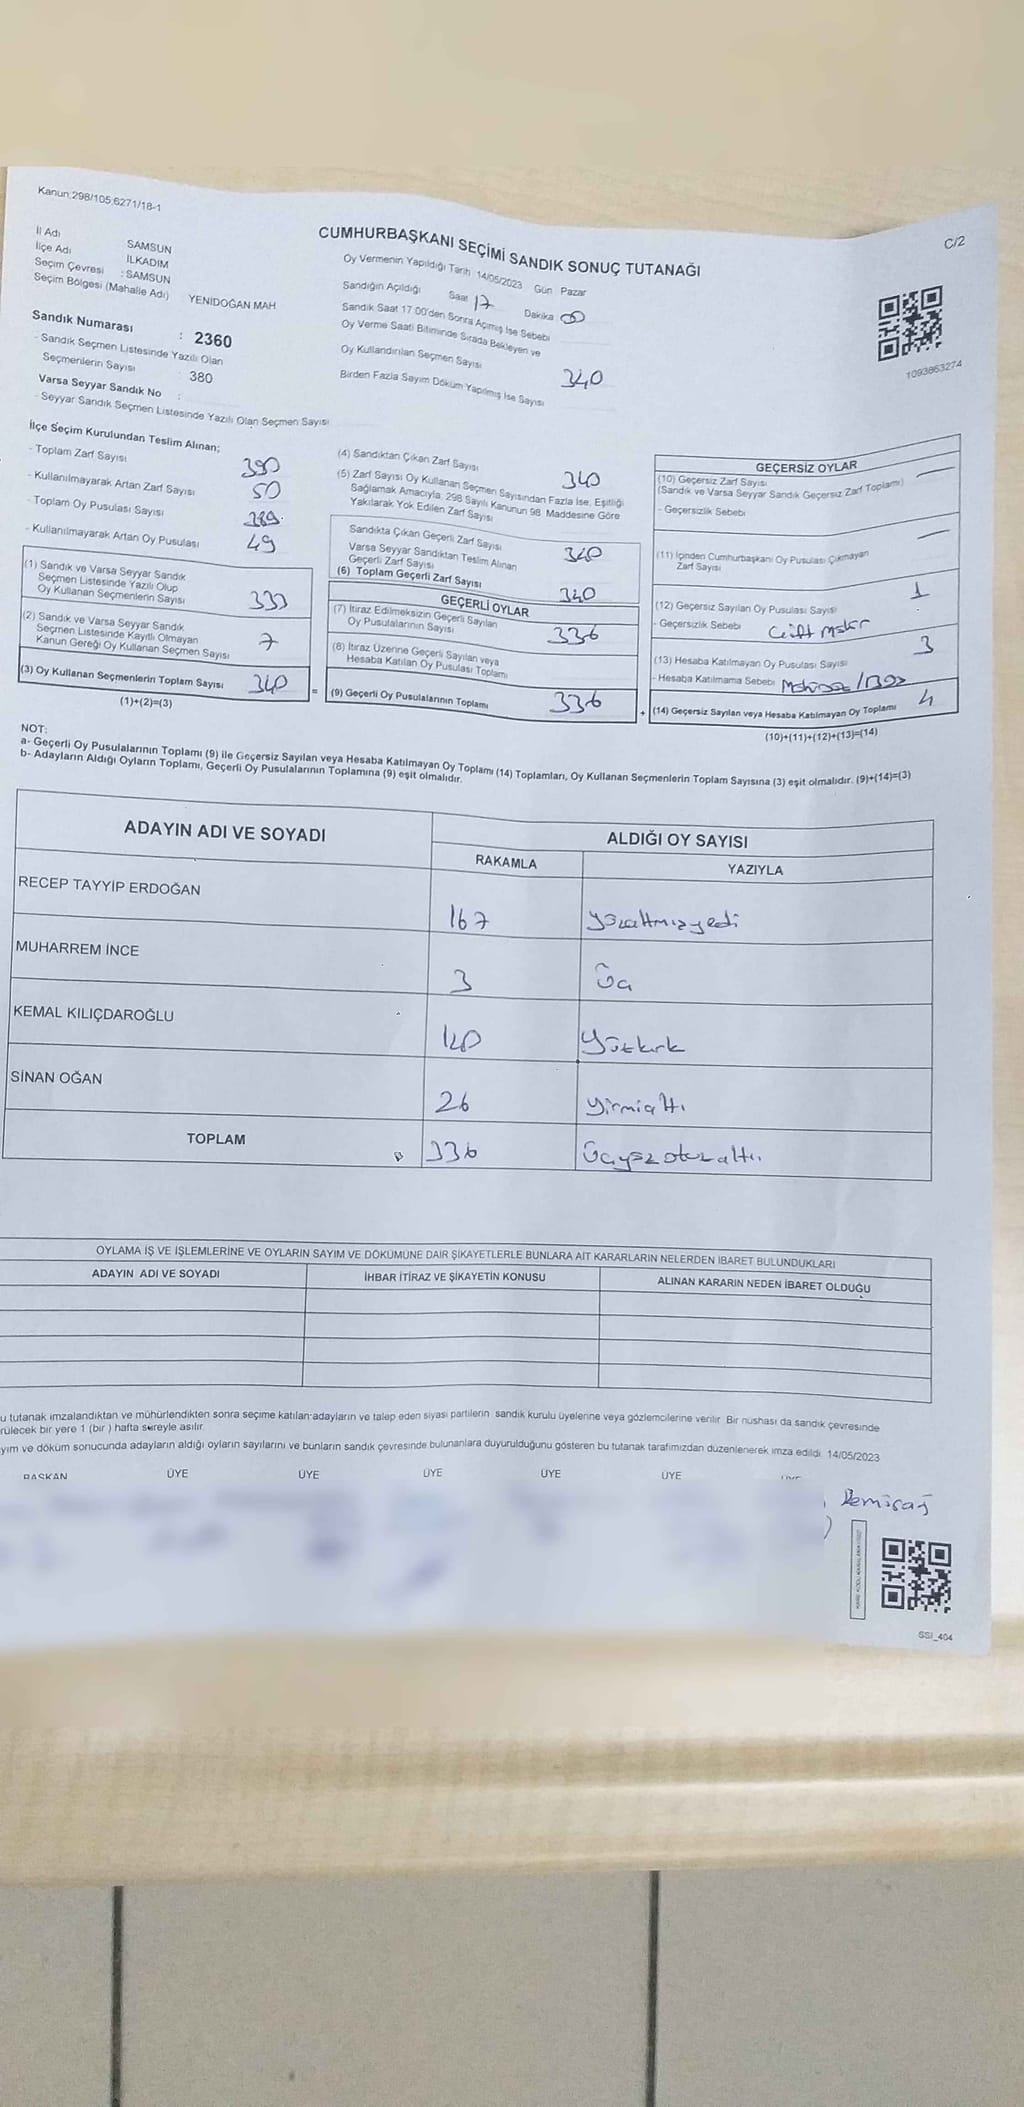 Kanun:298/105;6271/18-1
C/2
CUMHURBAŞKANI SEÇİMİ SANDIK SONUÇ TUTANAĞI
İl Adı SAMSUN
İlçe Adı İLKADIM
Seçim Çevresi : SAMSUN
Seçim Bölgesi (Mahalle Adı) YENİDOĞAN MAH
Sandık Numarası : 2360
- Sandık Seçmen Listesinde Yazılı Olan
Seçmenlerin Sayısı 380
Varsa Seyyar Sandık No :
- Seyyar Sandık Seçmen Listesinde Yazılı Olan Seçmen Sayısı
Oy Vermenin Yapıldığı Tarih 14/05/2023 Gün Pazar
Sandığın Açıldığı Saat 17 Dakika 00
Sandık Saat 17.00'den Sonra Açmış İse Sebebi
Oy Verme Saati Bitiminde Sırada Bekleyen ve
Oy Kullandırılan Seçmen Sayısı 340
Birden Fazla Sayım Döküm Yapılmış İse Sayısı
1093863274
İlçe Seçim Kurulundan Teslim Alınan;
- Toplam Zarf Sayısı 390
- Kullanılmayarak Artan Zarf Sayısı 50
- Toplam Oy Pusulası Sayısı 389
- Kullanılmayarak Artan Oy Pusulası 49
(1) Sandık ve Varsa Seyyar Sandık
Seçmen Listesinde Yazılı Olup
Oy Kullanan Seçmenlerin Sayısı 333
(2) Sandık ve Varsa Seyyar Sandık
Seçmen Listesinde Kayıtlı Olmayan
Kanun Gereği Oy Kullanan Seçmen Sayısı 7
(3) Oy Kullanan Seçmenlerin Toplam Sayısı 340
(1)+(2)=(3)
=
(4) Sandıktan Çıkan Zarf Sayısı 340
(5) Zarf Sayısı Oy Kullanan Seçmen Sayısından Fazla İse, Eşitliği
Sağlamak Amacıyla, 298 Sayılı Kanunun 98. Maddesine Göre
Yakılarak Yok Edilen Zarf Sayısı
Sandıkta Çıkan Geçerli Zarf Sayısı 340
Varsa Seyyar Sandıktan Teslim Alınan
Geçerli Zarf Sayısı
(6) Toplam Geçerli Zarf Sayısı 340
GEÇERLİ OYLAR
(7) İtiraz Edilmeksizin Geçerli Sayılan
Oy Pusulalarının Sayısı 336
(8) İtiraz Üzerine Geçerli Sayılan veya
Hesaba Katılan Oy Pusulası Toplamı
(9) Geçerli Oy Pusulalarının Toplamı 336
+
GEÇERSİZ OYLAR
(10) Geçersiz Zarf Sayısı
(Sandık ve Varsa Seyyar Sandık Geçersiz Zarf Toplamı)
- Geçersizlik Sebebi
(11) İçinden Cumhurbaşkanı Oy Pusulası Çıkmayan
Zarf Sayısı
(12) Geçersiz Sayılan Oy Pusulası Sayısı 1
- Geçersizlik Sebebi Çift Mühür
(13) Hesaba Katılmayan Oy Pusulası Sayısı 3
- Hesaba Katılmama Sebebi Mühürsüz/Boş
(14) Geçersiz Sayılan veya Hesaba Katılmayan Oy Toplamı 4
(10)+(11)+(12)+(13)=(14)
NOT:
a- Geçerli Oy Pusulalarının Toplamı (9) ile Geçersiz Sayılan veya Hesaba Katılmayan Oy Toplamı (14) Toplamları, Oy Kullanan Seçmenlerin Toplam Sayısına (3) eşit olmalıdır. (9)+(14)=(3)
b- Adayların Aldığı Oyların Toplamı, Geçerli Oy Pusulalarının Toplamına (9) eşit olmalıdır.
ADAYIN ADI VE SOYADI ALDIĞI OY SAYISI
RAKAMLA YAZIYLA
RECEP TAYYİP ERDOĞAN 167 yüzaltmışyedi
MUHARREM İNCE 3 Üç
KEMAL KILIÇDAROĞLU 140 Yüzkırk
SİNAN OĞAN 26 yirmialtı
TOPLAM 336 Üçyüzotuzaltı
OYLAMA İŞ VE İŞLEMLERİNE VE OYLARIN SAYIM VE DÖKÜMÜNE DAİR ŞİKAYETLERLE BUNLARA AİT KARARLARIN NELERDEN İBARET BULUNDUKLARI
ADAYIN ADI VE SOYADI İHBAR İTİRAZ VE ŞİKAYETİN KONUSU ALINAN KARARIN NEDEN İBARET OLDUĞU
u tutanak imzalandıktan ve mühürlendikten sonra seçime katılan adayların ve talep eden siyasi partilerin sandık kurulu üyelerine veya gözlemcilerine verilir. Bir nüshası da sandık çevresinde
rülecek bir yere 1 (bir ) hafta süreyle asılır.
yım ve döküm sonucunda adayların aldığı oyların sayılarını ve bunların sandık çevresinde bulunanlara duyurulduğunu gösteren bu tutanak tarafımızdan düzenlenerek imza edildi. 14/05/2023
BAŞKAN ÜYE ÜYE ÜYE ÜYE ÜYE ÜYE
SSI_404